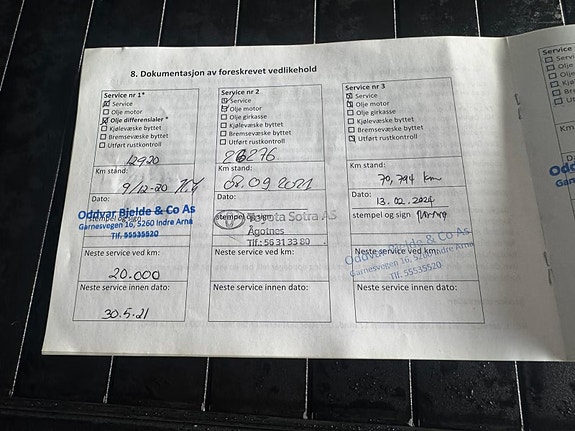 8. Dokumentasjon av foreskrevet vedlikehold
Service nr 1*
Service
Olje motor
Olje differensialer *
Kjølevæske byttet
Bremsevæske byttet
Utført rustkontroll
12920
Km stand:
9/12-20
Dato:
stempel og sign
Oddvar Bjelde & Co As
Garnesvegen 16, 5260 Indre Arna
Tlf. 55535520
Neste service ved km:
20.000
Neste service innen dato:
30.5.21
Service nr 2
Service
Olje motor
Olje girkasse
Kjølevæske byttet
Bremsevæske byttet
Utført rustkontroll
26276
Km stand:
08.09 2021
Dato:
stempel og sign
Toyota Sotra AS
Ågotnes
Tlf.: 56 31 33 80
Neste service ved km:
Neste service innen dato:
Service nr 3
Service
Olje motor
Olje girkasse
Kjølevæske byttet
Bremsevæske byttet
Utført rustkontroll
Km stand:
70,794 km
Dato:
13.02.2024
stempel og sign
Neste service ved km:
Oddvar Bjelde & Co As
Garnesvegen 16, 5260 Indre Arna
Tlf. 55535520
Neste service innen dato:
Service
Service
Olje
Olje